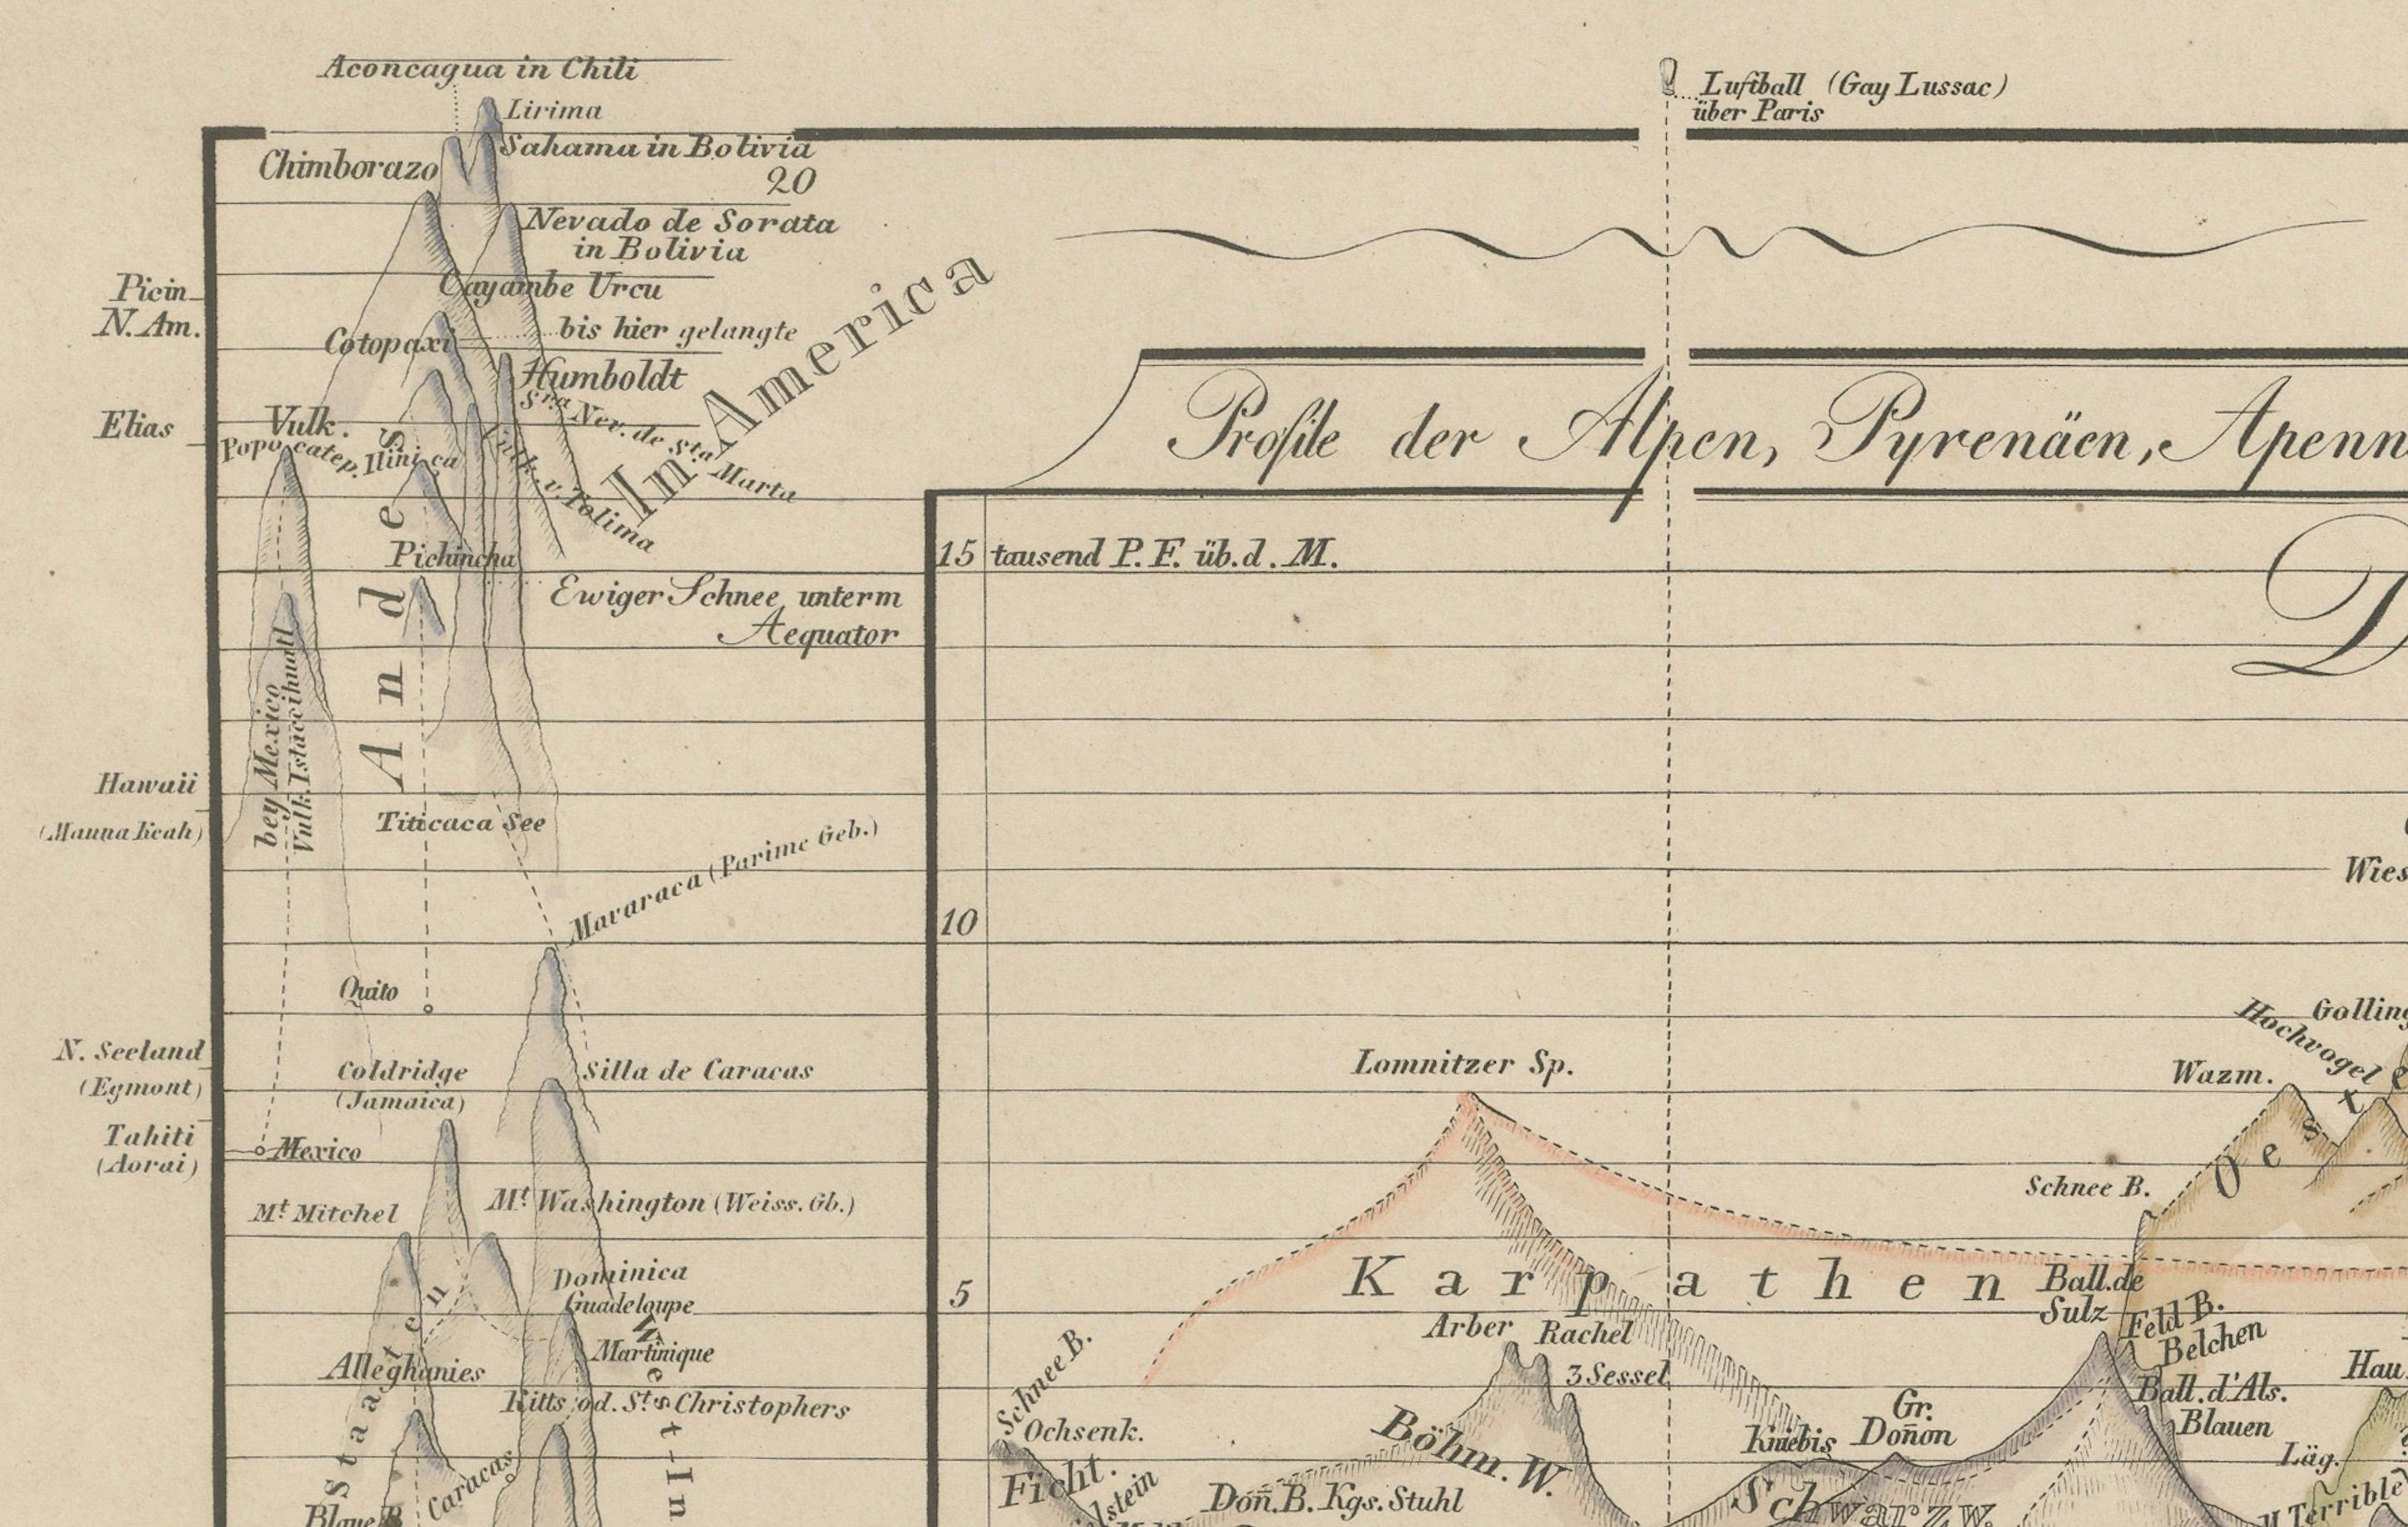 Aconcagua in Chili
Lirima
Sahama in Bolivia
Chimborazo
20
Nevado de Sorata
in Bolivia
Cayambe Urcu
Picin
N. Am.
Cotopaxi
bis hier gelangte
Humboldt
Elias
Vulk.
Popocatep.
Ilinica
Sra Nev. de Sta Marta
Vulk. v. Tolima
In America
Pichincha
Ewiger Schnee unterm
Aequator
Ande
bey Mexico
Vulk. Istaccihuatl
Hawaii
(Mauna Keah)
Titicaca See
Mavaraca (Parime Geb.)
Quito
N. Seeland
(Egmont)
Coldridge
(Jamaica)
Silla de Caracas
Tahiti
(Aorai)
Mexico
Mt. Mitchel
Mt. Washington (Weiss. Gb.)
Dominica
Guadeloupe
Martinique
Alleghanies
Kitts od. St. Christophers
Staaten
West-In
Caracas
Blaue B
Luftball (Gay Lussac)
über Paris
Profile der Alpen, Pyrenäen, Apenn
D
15 tausend P. F. üb. d. M.
Wies
10
Golling
Hochvogel
Lomnitzer Sp.
Wazm.
Oest
Schnee B.
Karpathen
5
Ball. de
Sulz
Feld B.
Belchen
Arber
Rachel
3 Sessel
Schnee B.
Ochsenk.
Ball. d'Als.
Blauen
Hau
Gr.
Doñon
Kniebis
Böhm. W.
Läg.
Ficht.
lstein
Doñ. B. Kgs. Stuhl
Schwarzw.
Terrible